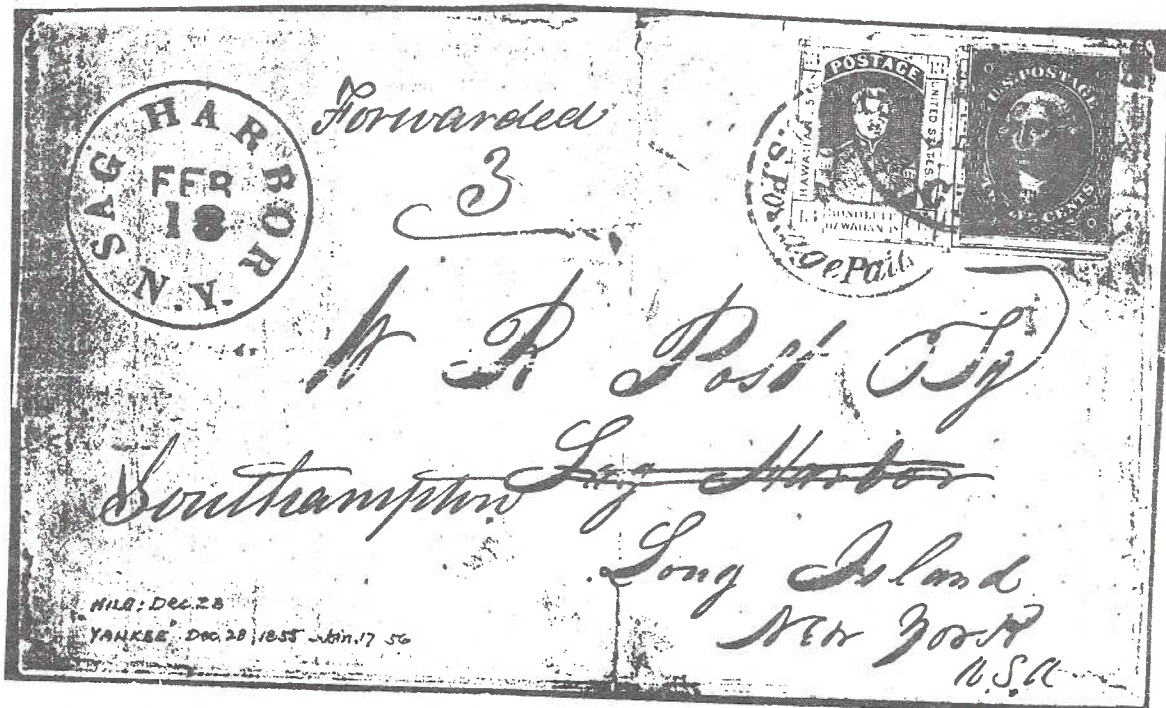 SAG HARBOR
FEB
18
N.Y.
Forwarded
3
POSTAGE
HAWAIIAN
UNITED STATES
13
HAWAIIAN IS
U.S. POSTAGE
CENTS
U.S. Postage Paid
W R Post
Sag Harbor
Southampton
Long Island
New York
U.S.A
HILO: Dec. 28
"YANKEE" Dec. 28, 1855 - Jan. 17 56